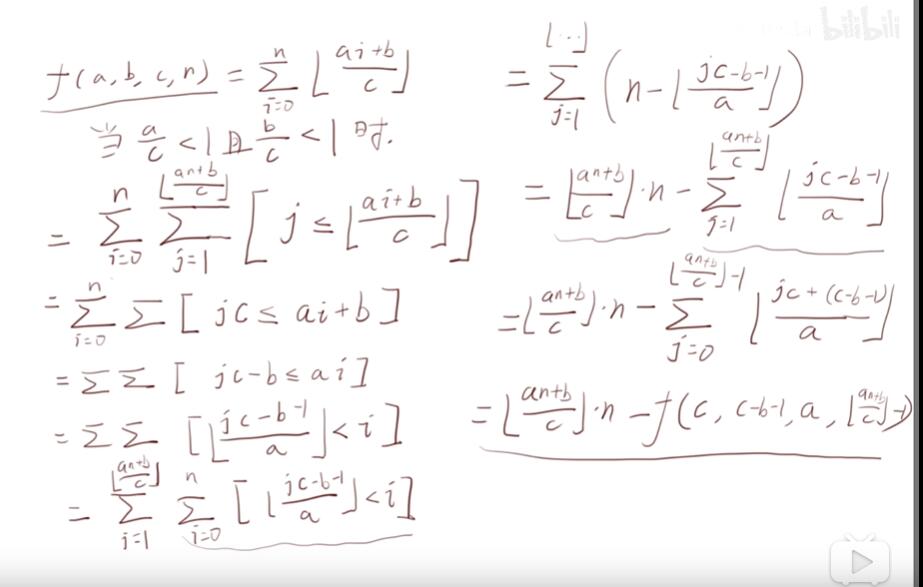 f(a,b,c,n) = \sum_{i=0}^{n} ⌊\frac{ai+b}{c}⌋
当 \frac{a}{c} < 1 且 \frac{b}{c} < 1 时.
= \sum_{i=0}^{n} \sum_{j=1}^{⌊\frac{an+b}{c}⌋} [ j ≤ ⌊\frac{ai+b}{c}⌋ ]
= \sum_{i=0}^{n} \sum [ jc ≤ ai+b ]
= \sum \sum [ jc-b ≤ ai ]
= \sum \sum [ ⌊\frac{jc-b-1}{a}⌋ < i ]
= \sum_{j=1}^{⌊\frac{an+b}{c}⌋} \sum_{i=0}^{n} [ ⌊\frac{jc-b-1}{a}⌋ < i ]
= \sum_{j=1}^{⌊...⌋} ( n - ⌊\frac{jc-b-1}{a}⌋ )
= ⌊\frac{an+b}{c}⌋·n - \sum_{j=1}^{⌊\frac{an+b}{c}⌋} ⌊\frac{jc-b-1}{a}⌋
= ⌊\frac{an+b}{c}⌋·n - \sum_{j=0}^{⌊\frac{an+b}{c}⌋-1} ⌊\frac{jc+(c-b-1)}{a}⌋
= ⌊\frac{an+b}{c}⌋·n - f(c, c-b-1, a, ⌊\frac{an+b}{c}⌋-1)
bilibili